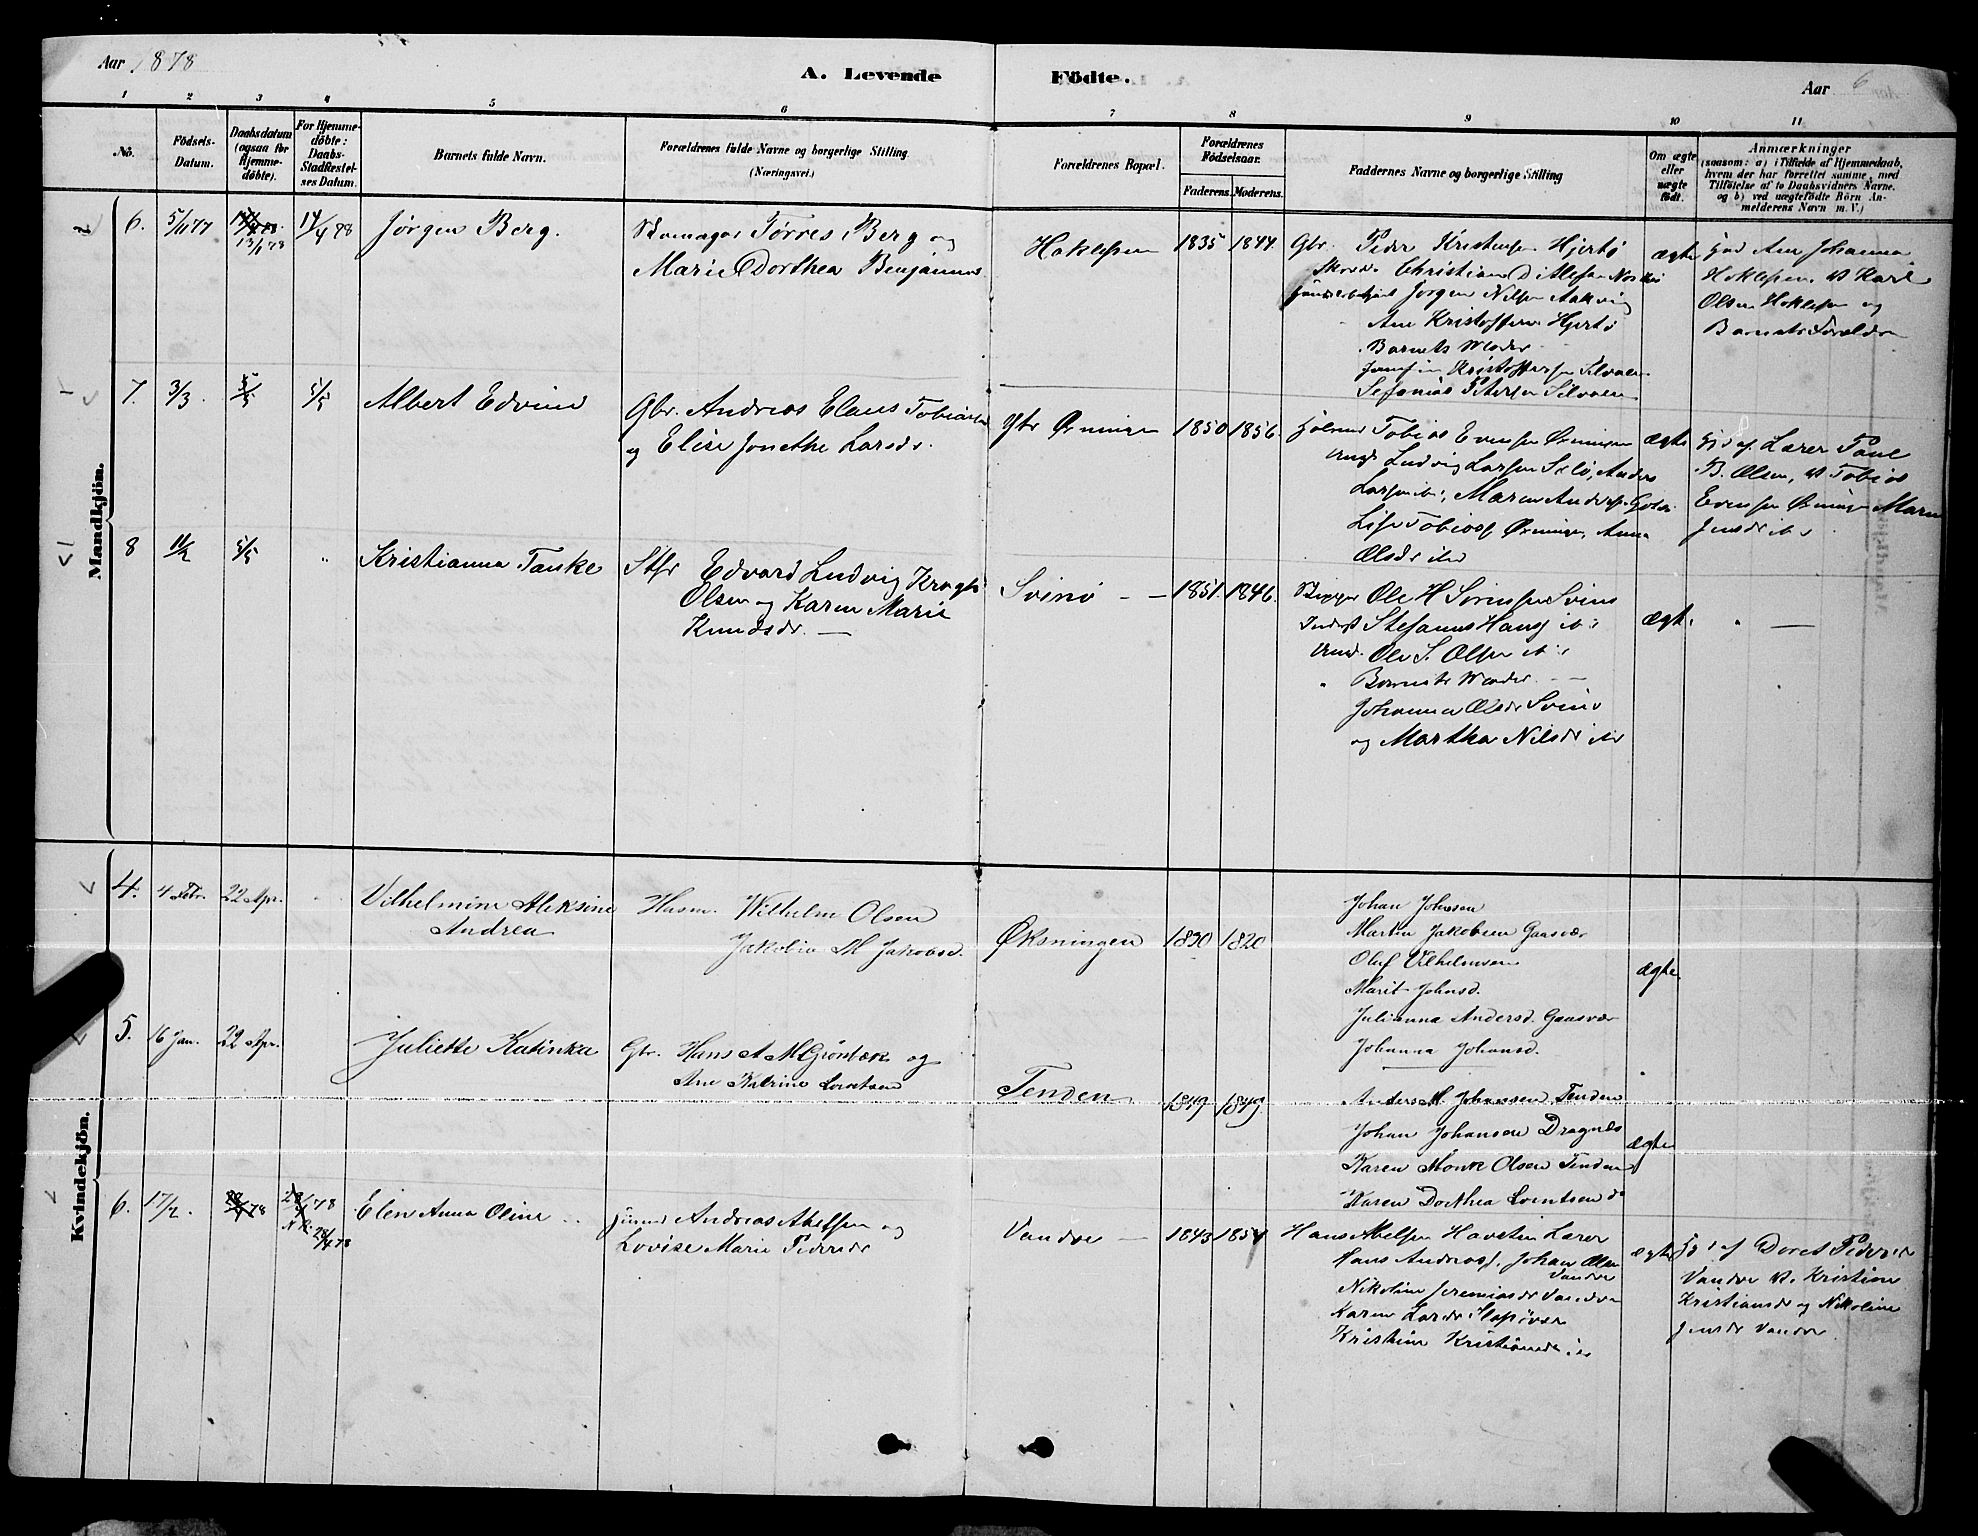 Aar 1878
A. Levende Födte.
Aar 6
1 2 3 4 5 6 7 8 9 10 11
No.
Födsels-Datum.
Daabsdatum (ogsaa for Hjemme-döbte).
For Hjemme-döbte: Daabs-Stadfæstel-ses Datum.
Barnets fulde Navn.
Forældrenes fulde Navne og borgerlige Stilling
(Næringsvei.)
Forældrenes Bopæl.
Forældrenes Födselsaar.
Faderens. Moderens.
Faddernes Navne og borgerlige Stilling
Om ægte eller uægte födt.
Anmærkninger
(saasom: a) i Tilfælde af Hjemmedaab,
hvem der har forrettet samme, med
Tilföielse af to Daabsvidners Navne.
og b) ved uægtefödte Börn An-
melderens Navn m. V.)
Mandkjön.
6. 5/11 77 13/1 78 14/4 78 Jørgen Berg.
Skomager Tørres Berg og
Marie Dorthea Benjamins
Haklepen 1835 1844.
Gbr. Peder Kristensen Hjertø
Christian Ditlefsen
Jørgen Nilsen Aakvig
Ane Kristoffersen Hjertø
Barnets Moder
Kristoffersen Silvalen
Sefanias Petersen Silvalen
ægte
Ane Johanna
Haklepen. v Karl
Olsen Haklepen og
Barnets Forældre
7. 3/3. 5/5 Albert Edvind
Gbr. Andreas Elaus Tobiass
og Elise Jonethe Larsdr.
Gbr Øxningen 1850 1856.
Tobias Evensen Øxningen
Ungk Ludvig Larsen Selø, Anders
Larsen ib:, Maren Anders
Lise Tobiass Øxningen, Anna
Olsdr ibd
ægte
Hjd af Lærer Paul
B. Olsen, v Tobias
Evensen Øxningen Maren
Jensdr ib:
8 11/2 5/5 " Kristianna Tanke
Stfr Edvard Ludvig Krogh
Olsen og Karen Marie
Knudsdr. —
Svinø — 1851. 1846.
Bygger Ole H Sørensen Svinø
Inderst Stefanus Hans ib:
Ungk. Ole S. Olsen ib:
" Barnets Moder —
Johanna Olsdr Svinø
og Martha Nilsdr ibd
ægte " —
Kvindekjön.
4. 4 Febr. 22 Apr. Vilhelmine Aleksine
Andrea
Husm. Wilhelm Olsen
Jakobia M Jakobsd.
Øksningen 1830 1820
Johan Johnsen
Martin Jakobsen Gaasvær
Oluf Vilhelmsen
Marit Johnsd.
Julianna Andersd. Gaasvær
Johanna Johansd.
ægte
5. 16 Jan. 22 Apr. Juliette Katinka
Gbr. Hans A M Grønbæk og
Ane Katrine Lorntsen
Tenden 1849 1849
Anders M. Johansen Tenden
Johan Johansen Dragnes
Karen Monk Olsen Tenden
Karen Dorthea Lorntsen do
ægte
6. 17/2. 28/4 78 Elen Anna Oline
Andreas Abelsen og
Lovise Marie Pedersdr
Vandve — 1843 1854
Hans Abelsen Havstein Lærer
Hans Andreas, Johan Olsen
Vandve
Nikoline Jeremiasdr Vandve
Karen Larsdr
Kristine Kristiansdr ib
ægte
Hjd af Doret Pedersdr
Vandve v. Kristine
Kristiansdr og Nikoline
Jensdr Vandve